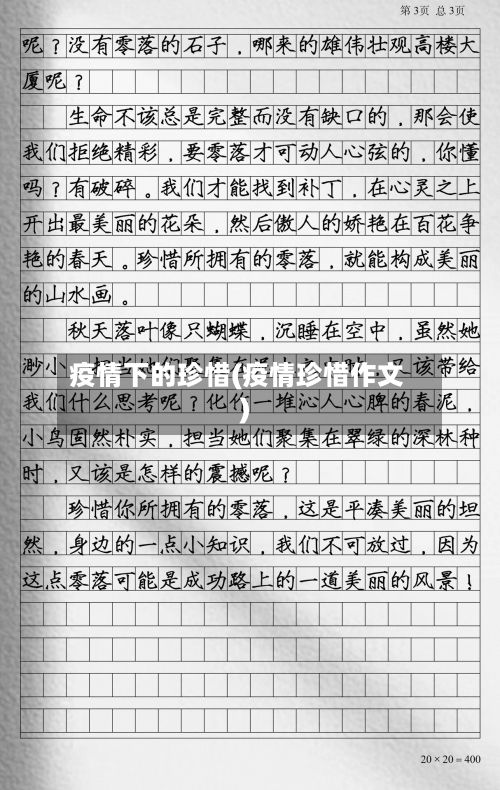 第3页 总3页
呢？没有零落的石子，哪来的雄伟壮观高楼大
厦呢？
生命不该总是完整而没有缺口的，那会使
我们拒绝精彩，要零落才可动人心弦的，你懂
吗？有破碎。我们才能找到补丁，在心灵之上
开出最美丽的花朵，然后傲人的娇艳在百花争
艳的春天。珍惜所拥有的零落，就能构成美丽
的山水画。
秋天落叶像只蝴蝶，沉睡在空中，虽然她
渺小，担当她们聚集在 又该带给
疫情下的珍惜(疫情珍惜作文
)
我们什么思考呢？化作一堆沁人心脾的春泥，
小鸟固然朴实，担当她们聚集在翠绿的深林种
时，又该是怎样的震撼呢？
珍惜你所拥有的零落，这是平凑美丽的坦
然，身边的一点小知识，我们不可放过，因为
这点零落可能是成功路上的一道美丽的风景！
20×20=400